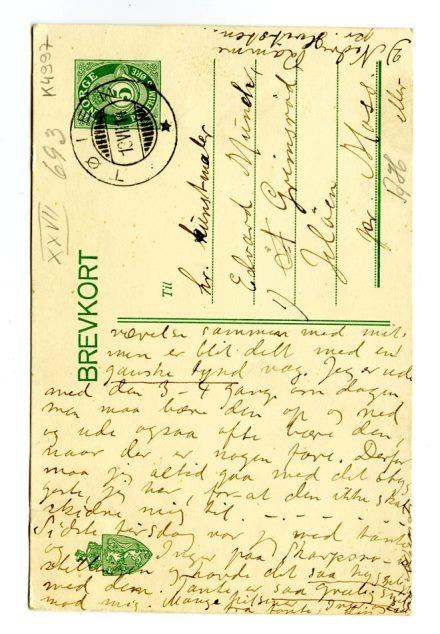 K4997
XXVII 693
NORGE
5
ØRE
LØTEN
13 VII 14
BREVKORT
Til
hr. kunstmaler
Edvard Munch
1) Grimsrød
Jeløen
pr. Moss
eller
2) Nedre Ramme
pr. Hvitsten.
værelse sammen med mit.
men er blit delt med en
ganske tynd væg. Jeg er ude
med den 3-4 gang om dagen,
men maa bære den op og ned
og ude ogsaa ofte bære den,
naar der er nogen fare. Derfor
maa jeg altid gaa med det
jeg har, for at den ikke skal
skidne mig til.
Sidste tirsdag var jeg med tante
og Inger paa
og havde det saa hyggelig
med dem. Tante er saa
mod mig. Mange hilsener
fra tante, Inger og